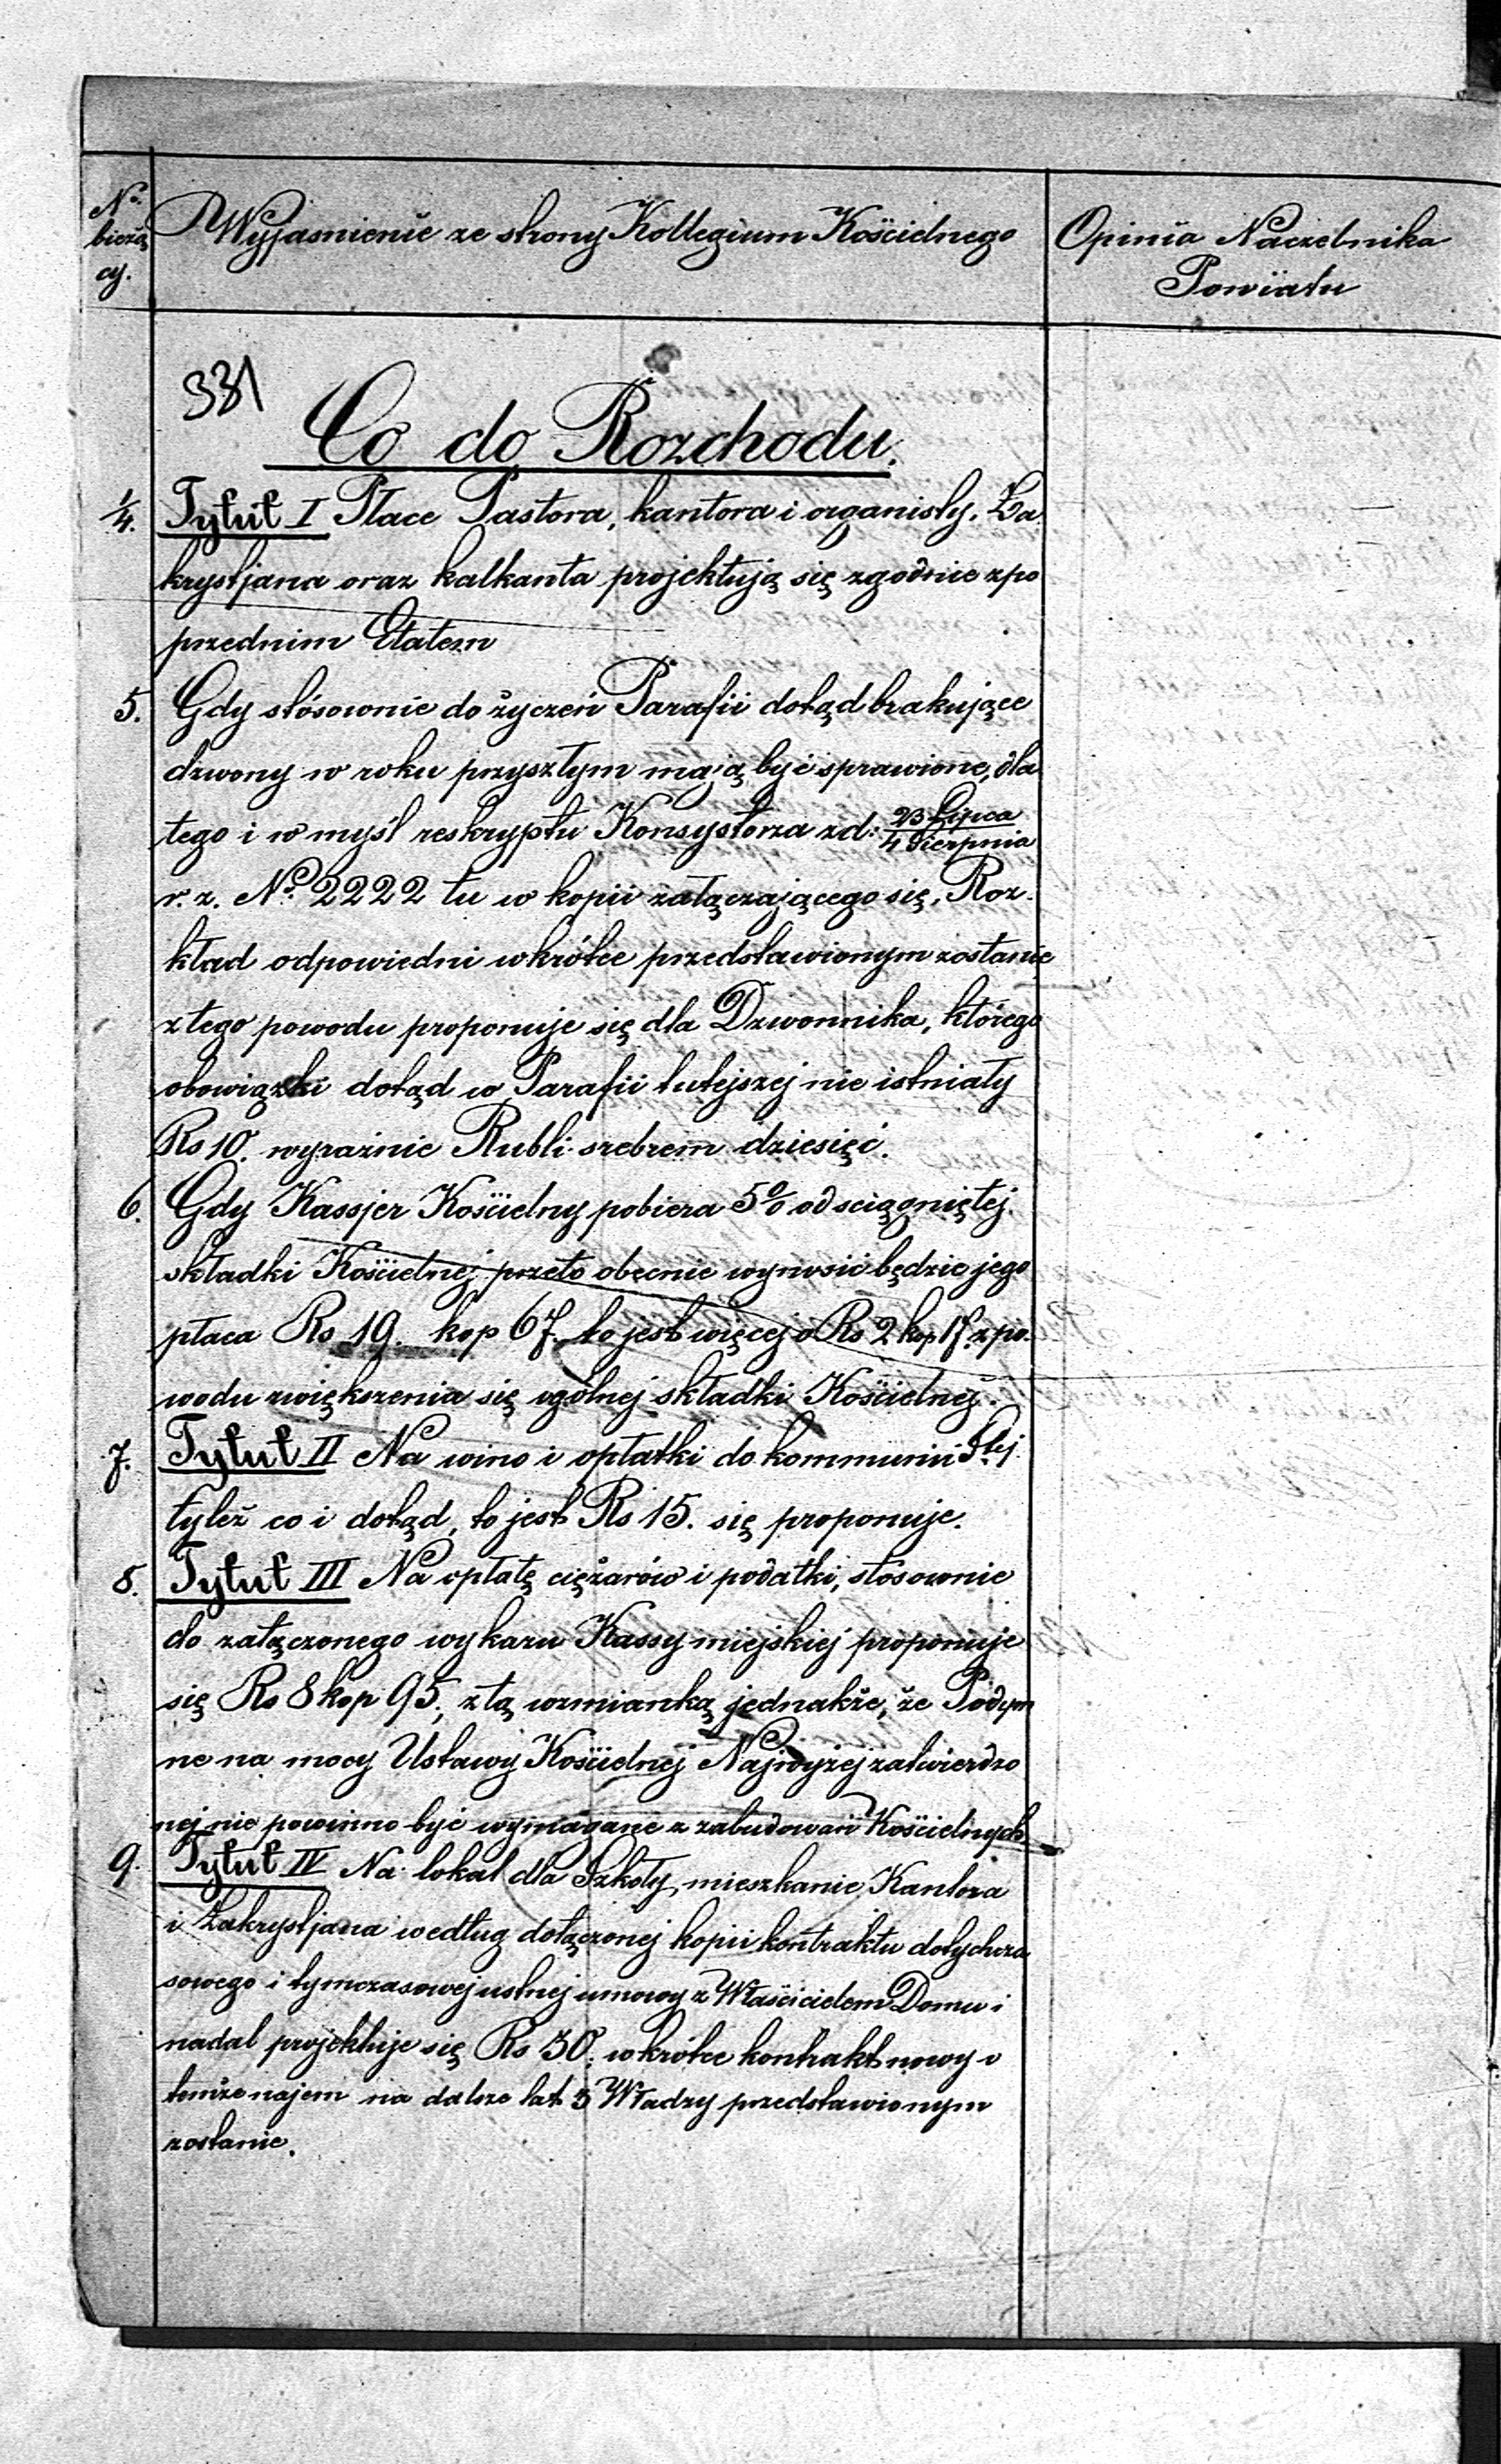 No.
bieżą
cy.
Wyjasnienie ze strony Kollegium Kościelnego
Opinia Naczelnika
Powiatu
331
Co do Rozchodu.
1/4. Tytuł I Płace Pastora, kantora i organisty, Za
krystjana oraz kalkanta projektują się zgodnie z po
przednim Etatem
5. Gdy stósownie do życzeń Parafii dotąd brakujące
dzwony w roku przyszłym mają być sprawione, dla
tego i w myśl reskryptu Konsystorza z d: 23 Lipca / 4 Sierpnia
r. z. No. 2222 tu w kopii załączającego się, Roz-
kład odpowiedni wkrótce przedstawionym zostanie
z tego powodu proponuje się dla Dzwonnika, którego
obowiązki dotąd w Parafii tutejszej nie istniały
Rs 10. wyraźnie Rubli srebrem dziesięć.
6. Gdy Kassjer Kościelny pobiera 5% od sciągniętej
składki Kościelnej przeto obecnie wynosić będzie jego
płaca Rs 19. kop 67. to jest więcej o Rs 2 kop 17. z po-
wodu zwiększenia się ogólnej składki Kościelnej.
7. Tytuł II Na wino i opłatki do kommunii S.tej
tyleż co i dotąd, to jest Rs 15. się proponuje.
8. Tytuł III Na opłatę ciężarów i podatki, stosownie
do załączonego wykazu Kassy miejskiej proponuje
się Rs 8 kop 95, z tą wzmianką jednakże, że Podym
ne na mocy Ustawy Kościelnej Najwyżej zatwierdzo
nej nie powinno być wymagane z zabudowań Kościelnych
9. Tytuł IV Na lokal dla Szkoły, mieszkanie Kantora
i Zakrystjana według dołączonej kopii kontraktu dotychcza
sowego i tymczasowej ustnej umowy z Właścicielem Domu i
nadal projektuje się Rs 30. wkrótce kontrakt nowy o
temże najem na dalsze lat 3 Władzy przedstawionym
zostanie.